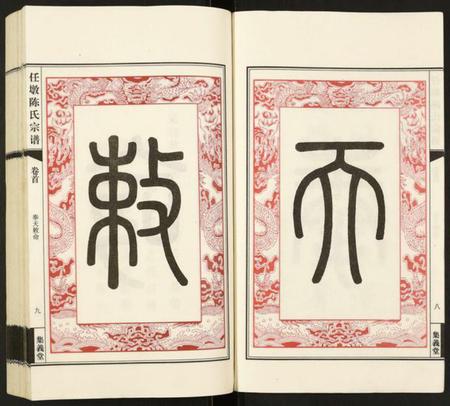 天
八
集義堂
敕
任墩陈氏宗谱
卷首
奉天敕命
九
集義堂